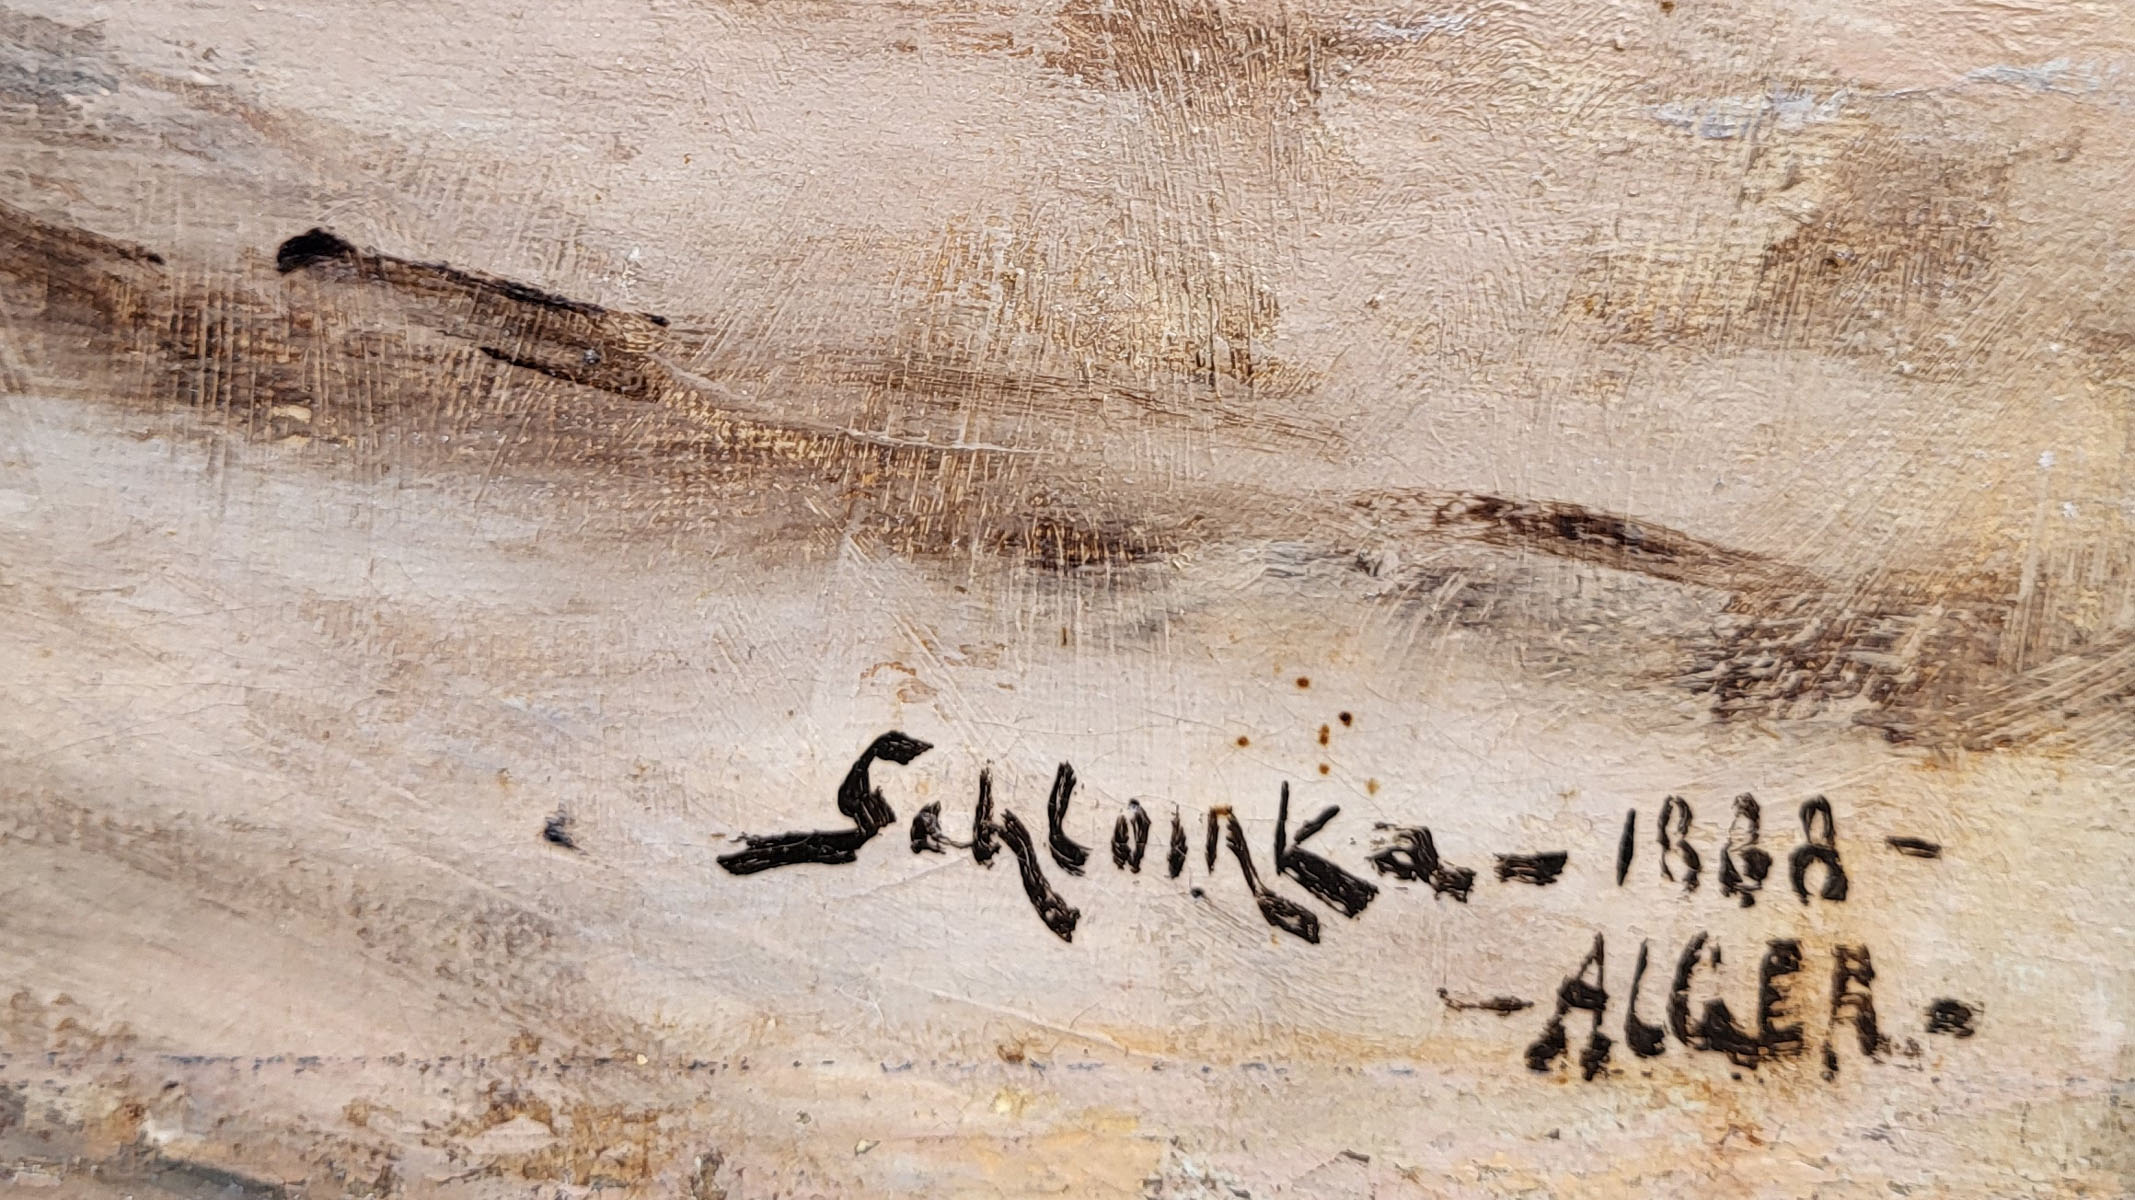 Schloinka - 1888 -
- ALGER -